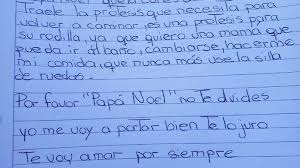 Papá Noel
Traele la protesis que necesita para
volver a caminar, es una protesis para
su rodilla, ya que quiero una mama que
pueda ir al baño, cambiarse, hacerme
mi comida, que nunca más use la silla
de ruedas.
Por favor "Papá Noel" no Te olvides
yo me voy a portar bien Te lo juro
Te voy amar por siempre